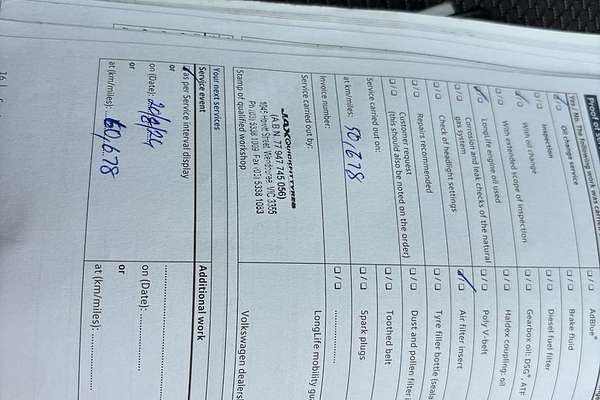 Proof of
Yes / No: The following work was carried
Oil change service
Inspection
With oil change
With extended scope of inspection
LongLife engine oil used
Corrosion and leak checks of the natural gas system
Check of headlight settings
Repairs recommended
Customer request
(this should also be noted on the order)
Service carried out on:
at km/miles: 50,678
Invoice number:
Service carried out by:
JAX QUICKFIT TYRES
(A.B.N. 77 947 745 056)
Wendouree, VIC 3355
Ph (03) 5338 1099 Fax (03) 5338 1083
Stamp of qualified workshop
AdBlue®
Brake fluid
Diesel fuel filter
Gearbox oil: DSG®, ATF
Haldex coupling: oil
Poly V-belt
Air filter insert
Tyre filler bottle
Dust and pollen filter
Toothed belt
Spark plugs
LongLife mobility
Volkswagen
Your next services
Service event
as per Service interval display
or
on (Date): 20/8/24
or
at (km/miles): 60,678
Additional work
on (Date):
or
at (km/miles):